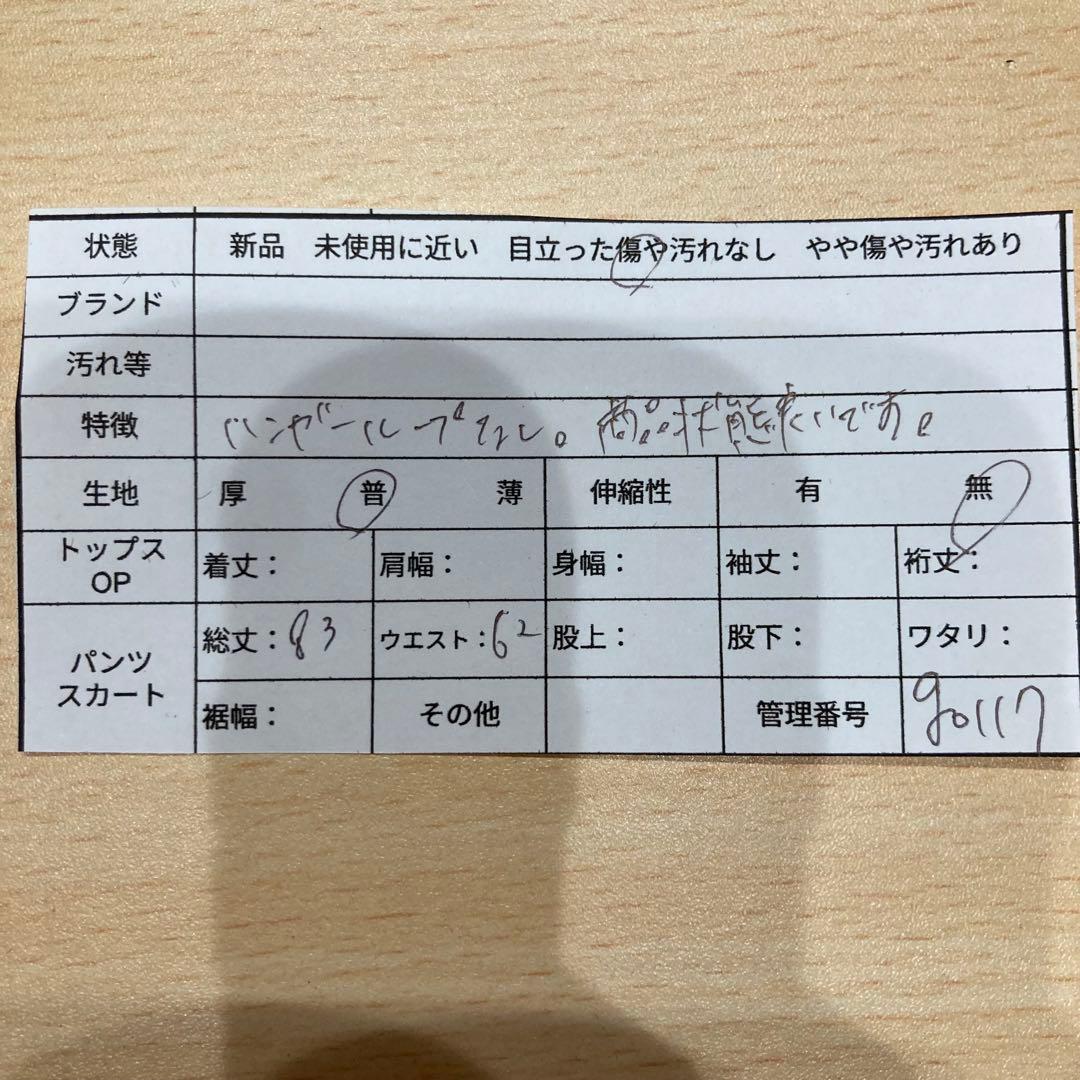 状態 新品 未使用に近い 目立った傷や汚れなし やや傷や汚れあり
ブランド
汚れ等
特徴 ハンガーループなし。商品状態良いです。
生地 厚 普 薄 伸縮性 有 無
トップス OP 着丈： 肩幅： 身幅： 袖丈： 裄丈：
パンツ スカート 総丈：83 ウエスト：62 股上： 股下： ワタリ：
裾幅： その他 管理番号 90117